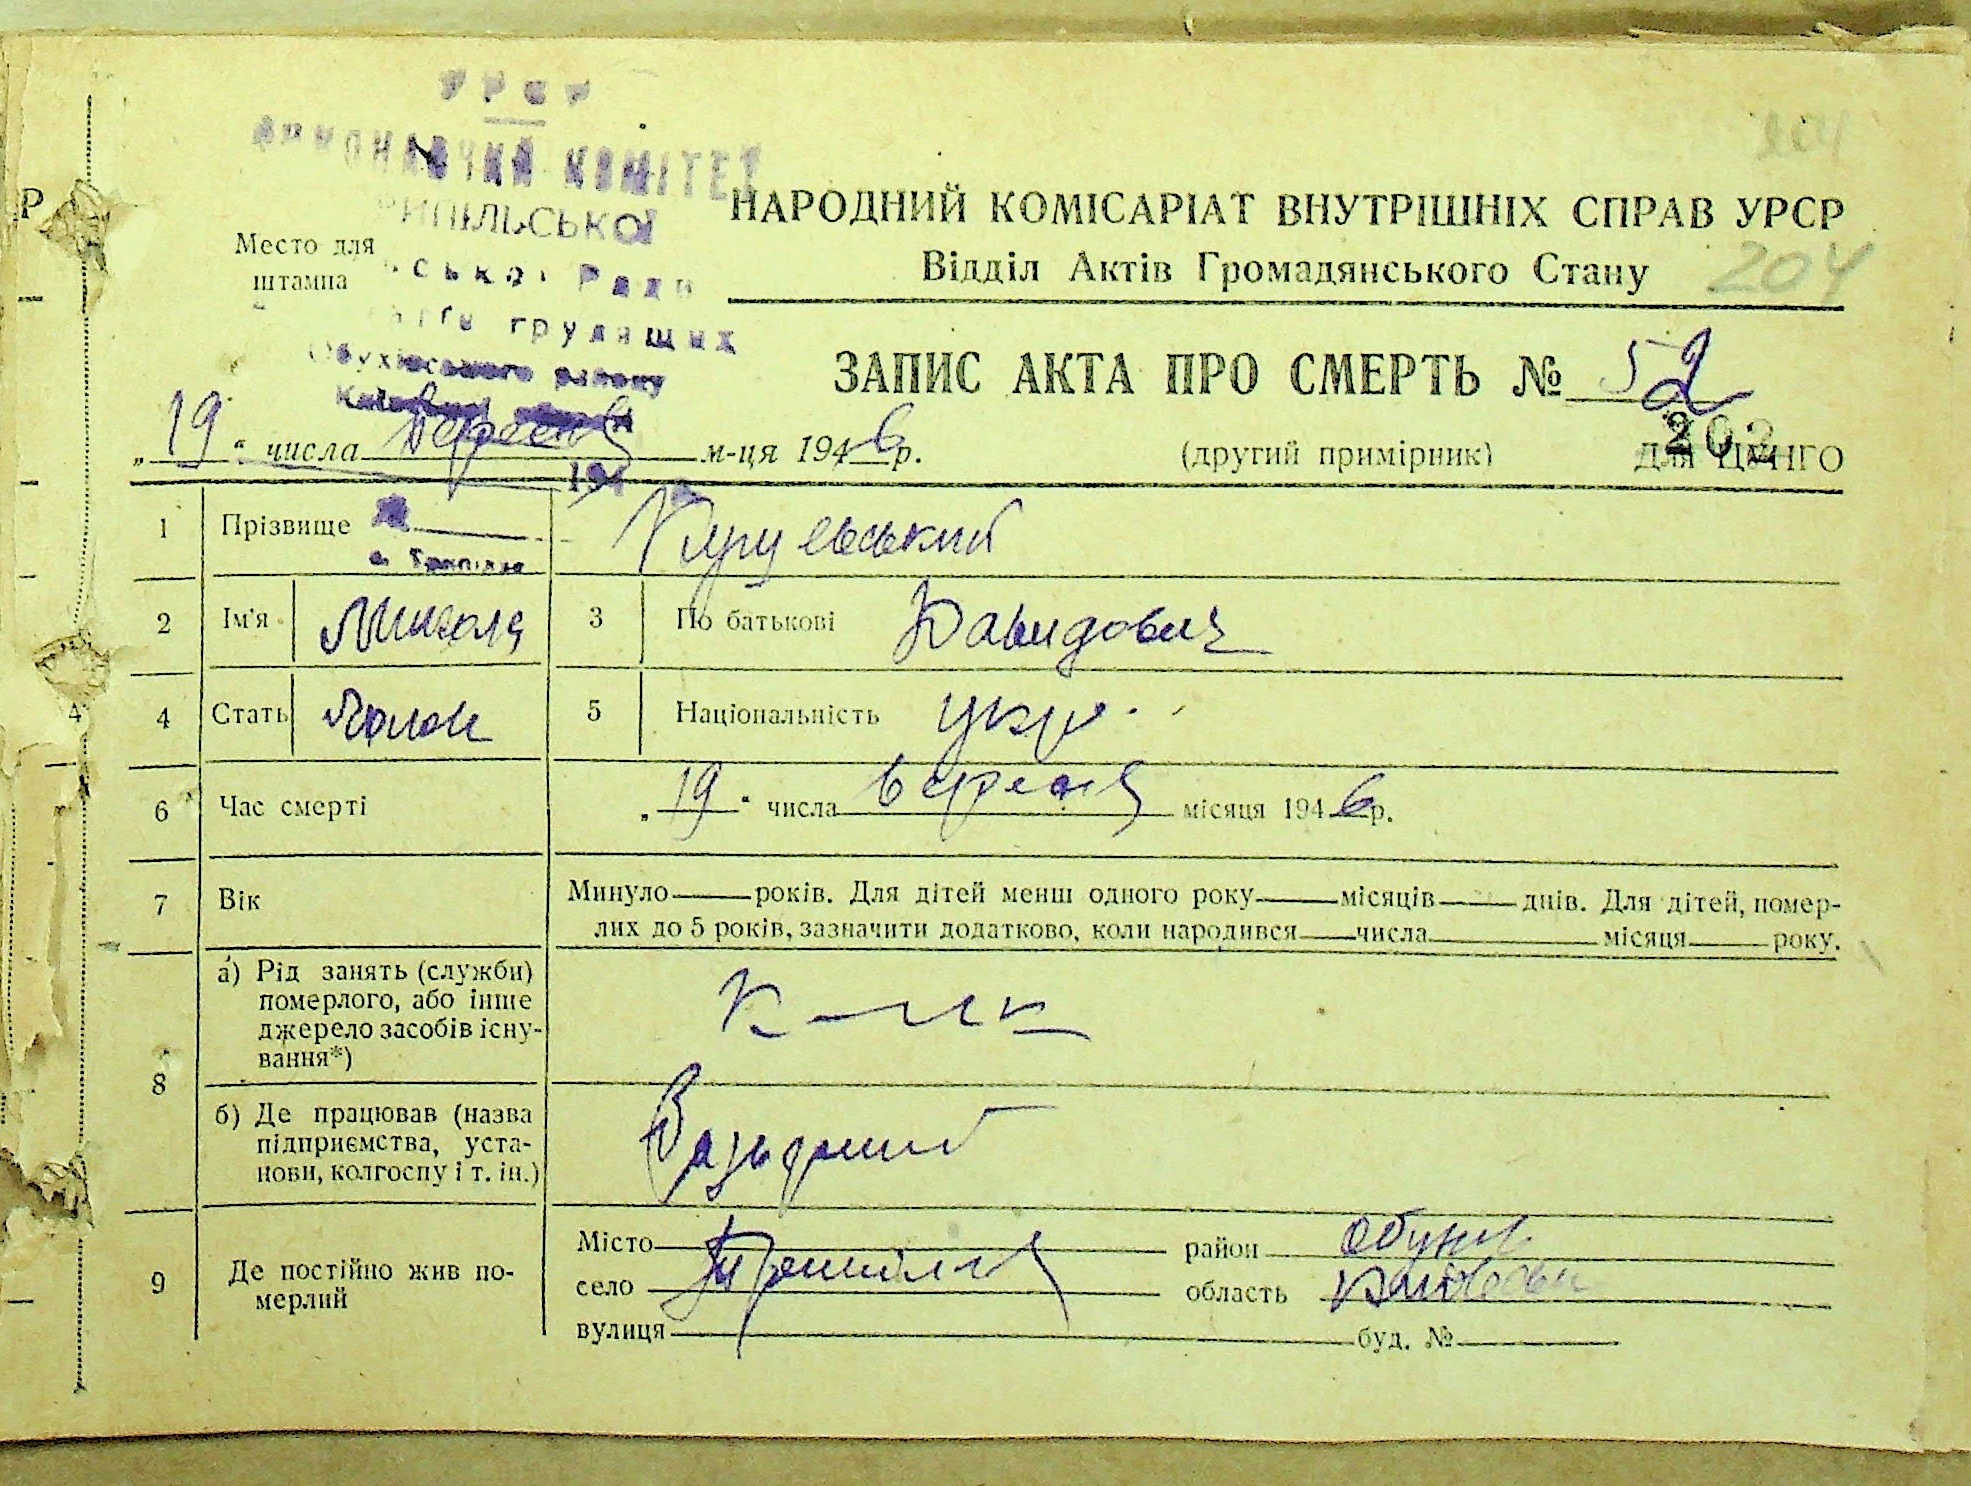 УРСР
ВИКОНАВЧИЙ КОМІТЕТ
ТРИПІЛЬСЬКОЇ
ської Ради
трудящих
Обухівського району
Київської області
194
с. Трипілля
Место для
штампа
204
НАРОДНИЙ КОМІСАРІАТ ВНУТРІШНІХ СПРАВ УРСР
Відділ Актів Громадянського Стану 204
ЗАПИС АКТА ПРО СМЕРТЬ № 52
202
„19“ числа вересня м-ця 1946 р. (другий примірник) Для ЦУНГО
1 Прізвище
2 Ім'я Микола 3 По батькові Давидович
4 Стать чолов 5 Національність укр.
6 Час смерті „19“ числа вересня місяця 1946 р.
7 Вік Минуло років. Для дітей менш одного року місяців днів. Для дітей, помер-
лих до 5 років, зазначити додатково, коли народився числа місяця року.
8 а) Рід занять (служби)
померлого, або інше
джерело засобів існу-
вання*)
б) Де працював (назва
підприємства, уста-
нови, колгоспу і т. ін.)
9 Де постійно жив по-
мерлий
Місто район Обухів
село Трипілля область Київська
вулиця буд. №
Р
4